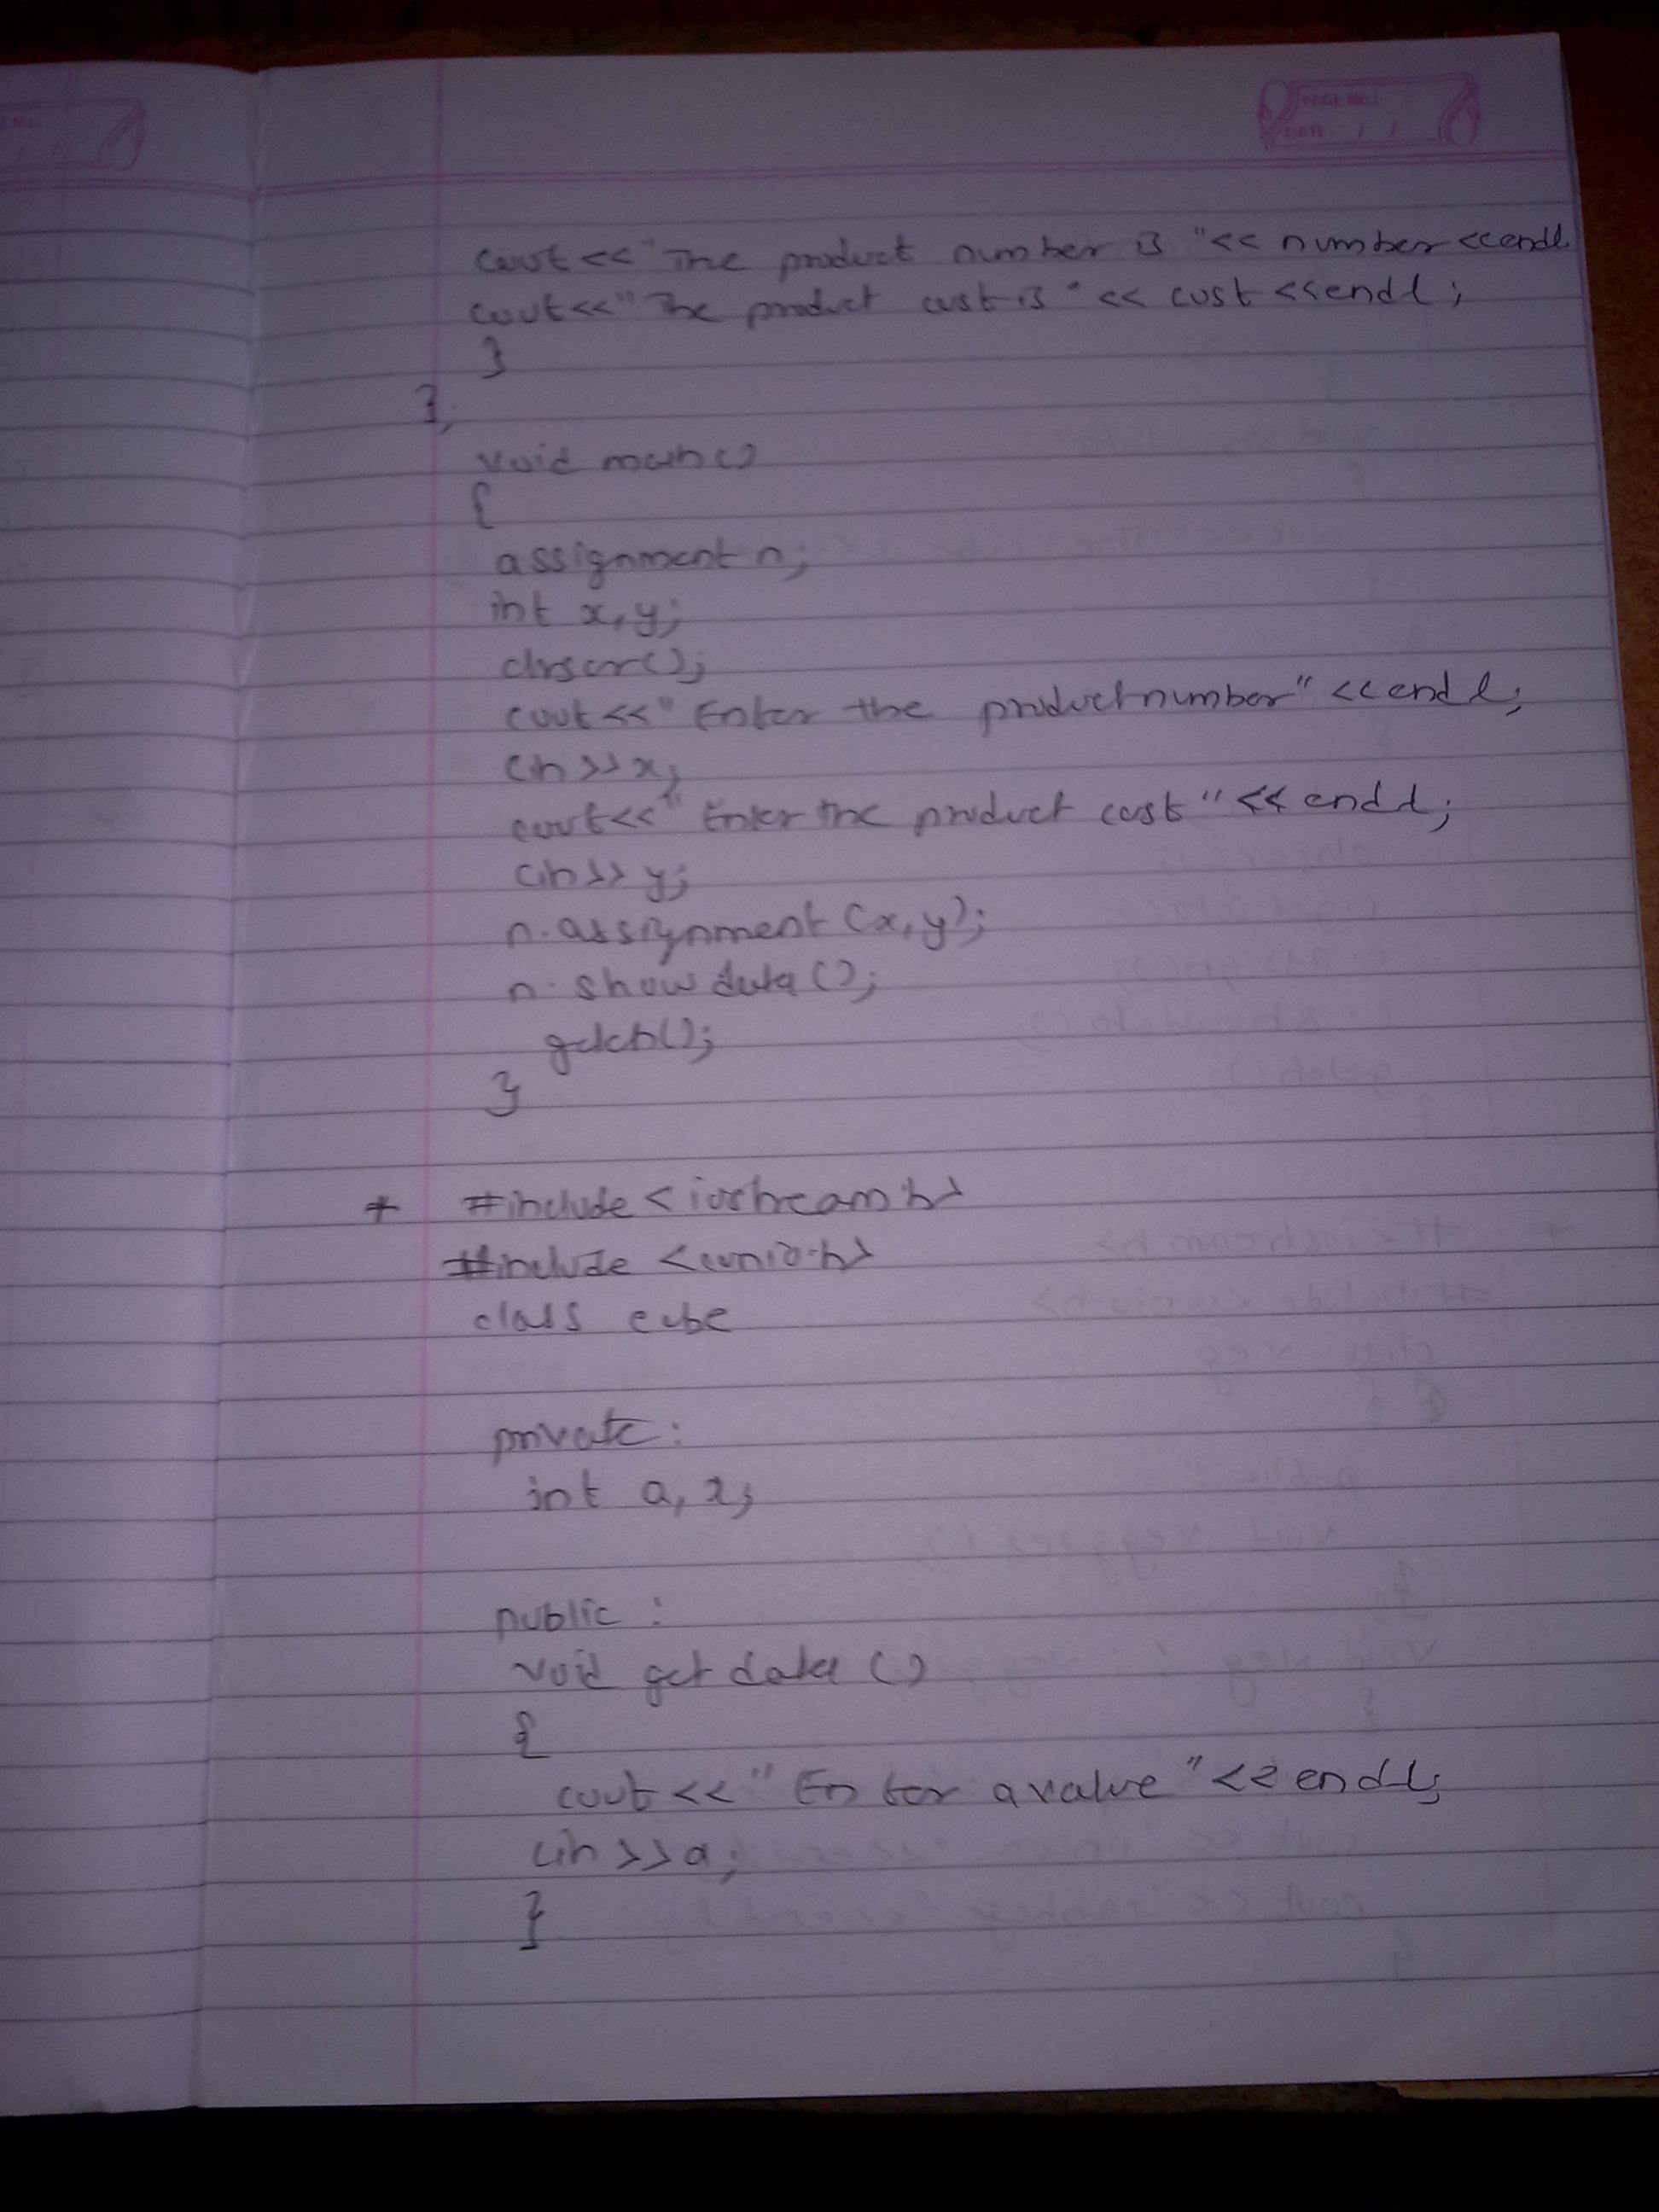 PAGE NO.:
DATE: / /
cout<<"The product number is "<< number <<endl
cout<<"The product cost is "<< cost <<endl;
}
};
void main()
{
assignment n;
int x,y;
clrscr();
cout<<" Enter the product number" <<endl;
cin>>x;
cout<<" Enter the product cost "<< endl;
cin>> y;
n.assignment (x,y);
n. show data ();
getch();
}
* #include <iostream.h>
#include <conio.h>
class cube
private:
int a, z;
public :
void get data ()
{
cout << " Enter a value "<< endl;
cin >>a;
}